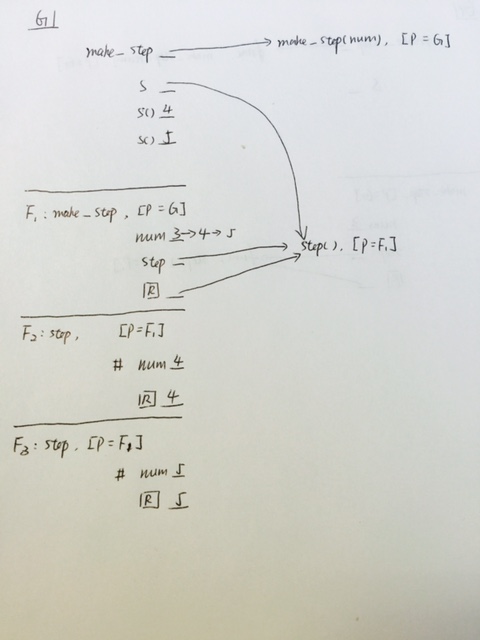 G|
make_step → make_step(num), [P = G]
s
s() 4
s() 5
F1: make_step, [P = G]
num 3→4→5
step → step(), [P=F1]
R
F2: step, [P=F1]
# num 4
R 4
F3: step, [P=F1]
# num 5
R 5